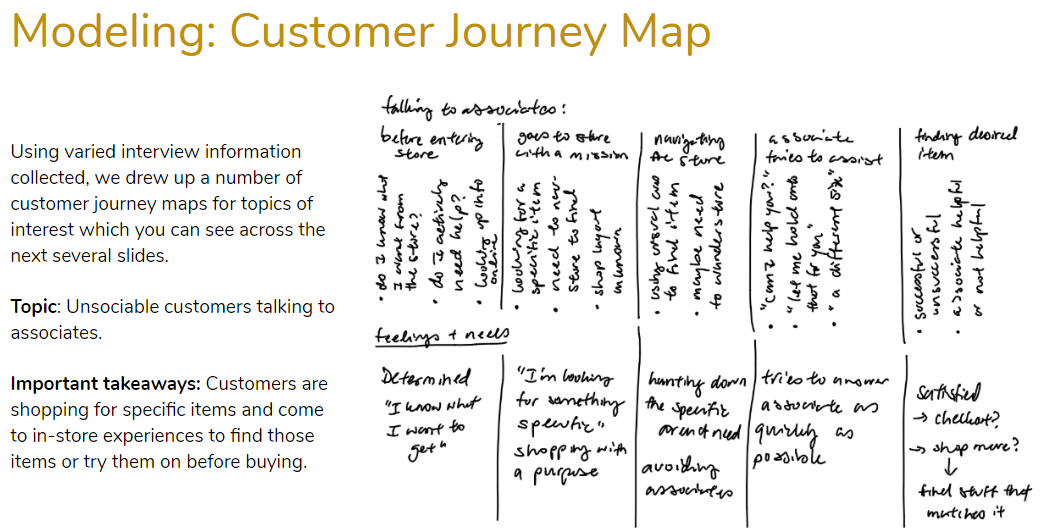 Modeling: Customer Journey Map
Using varied interview information
collected, we drew up a number of
customer journey maps for topics of
interest which you can see across the
next several slides.
Topic: Unsociable customers talking to
associates.
Important takeaways: Customers are
shopping for specific items and come
to in-store experiences to find those
items or try them on before buying.
talking to associates:
before entering
store
• do I know what
I want from
the store?
• do I actively
need help?
• looking up info
online
goes to store
with a mission
• looking for a
specific item
• need to nav-
store to find
• shop layout
unknown
navigating
the store
• using visual cues
to find item
• maybe need
to wander store
associate
tries to assist
• "can I help you?"
• "let me hold onto
that for you"
• "a different size"
finding desired
item
• successful or
unsuccessful
• associate helpful
or not helpful
feelings + needs
Determined
"I know what
I want to
get"
"I'm looking
for something
specific"
shopping with
a purpose
hunting down
the specific
need
avoiding
associates
tries to answer
associate as
quickly as
possible
satisfied
→ checkout?
→ shop more?
↓
find stuff that
matches it